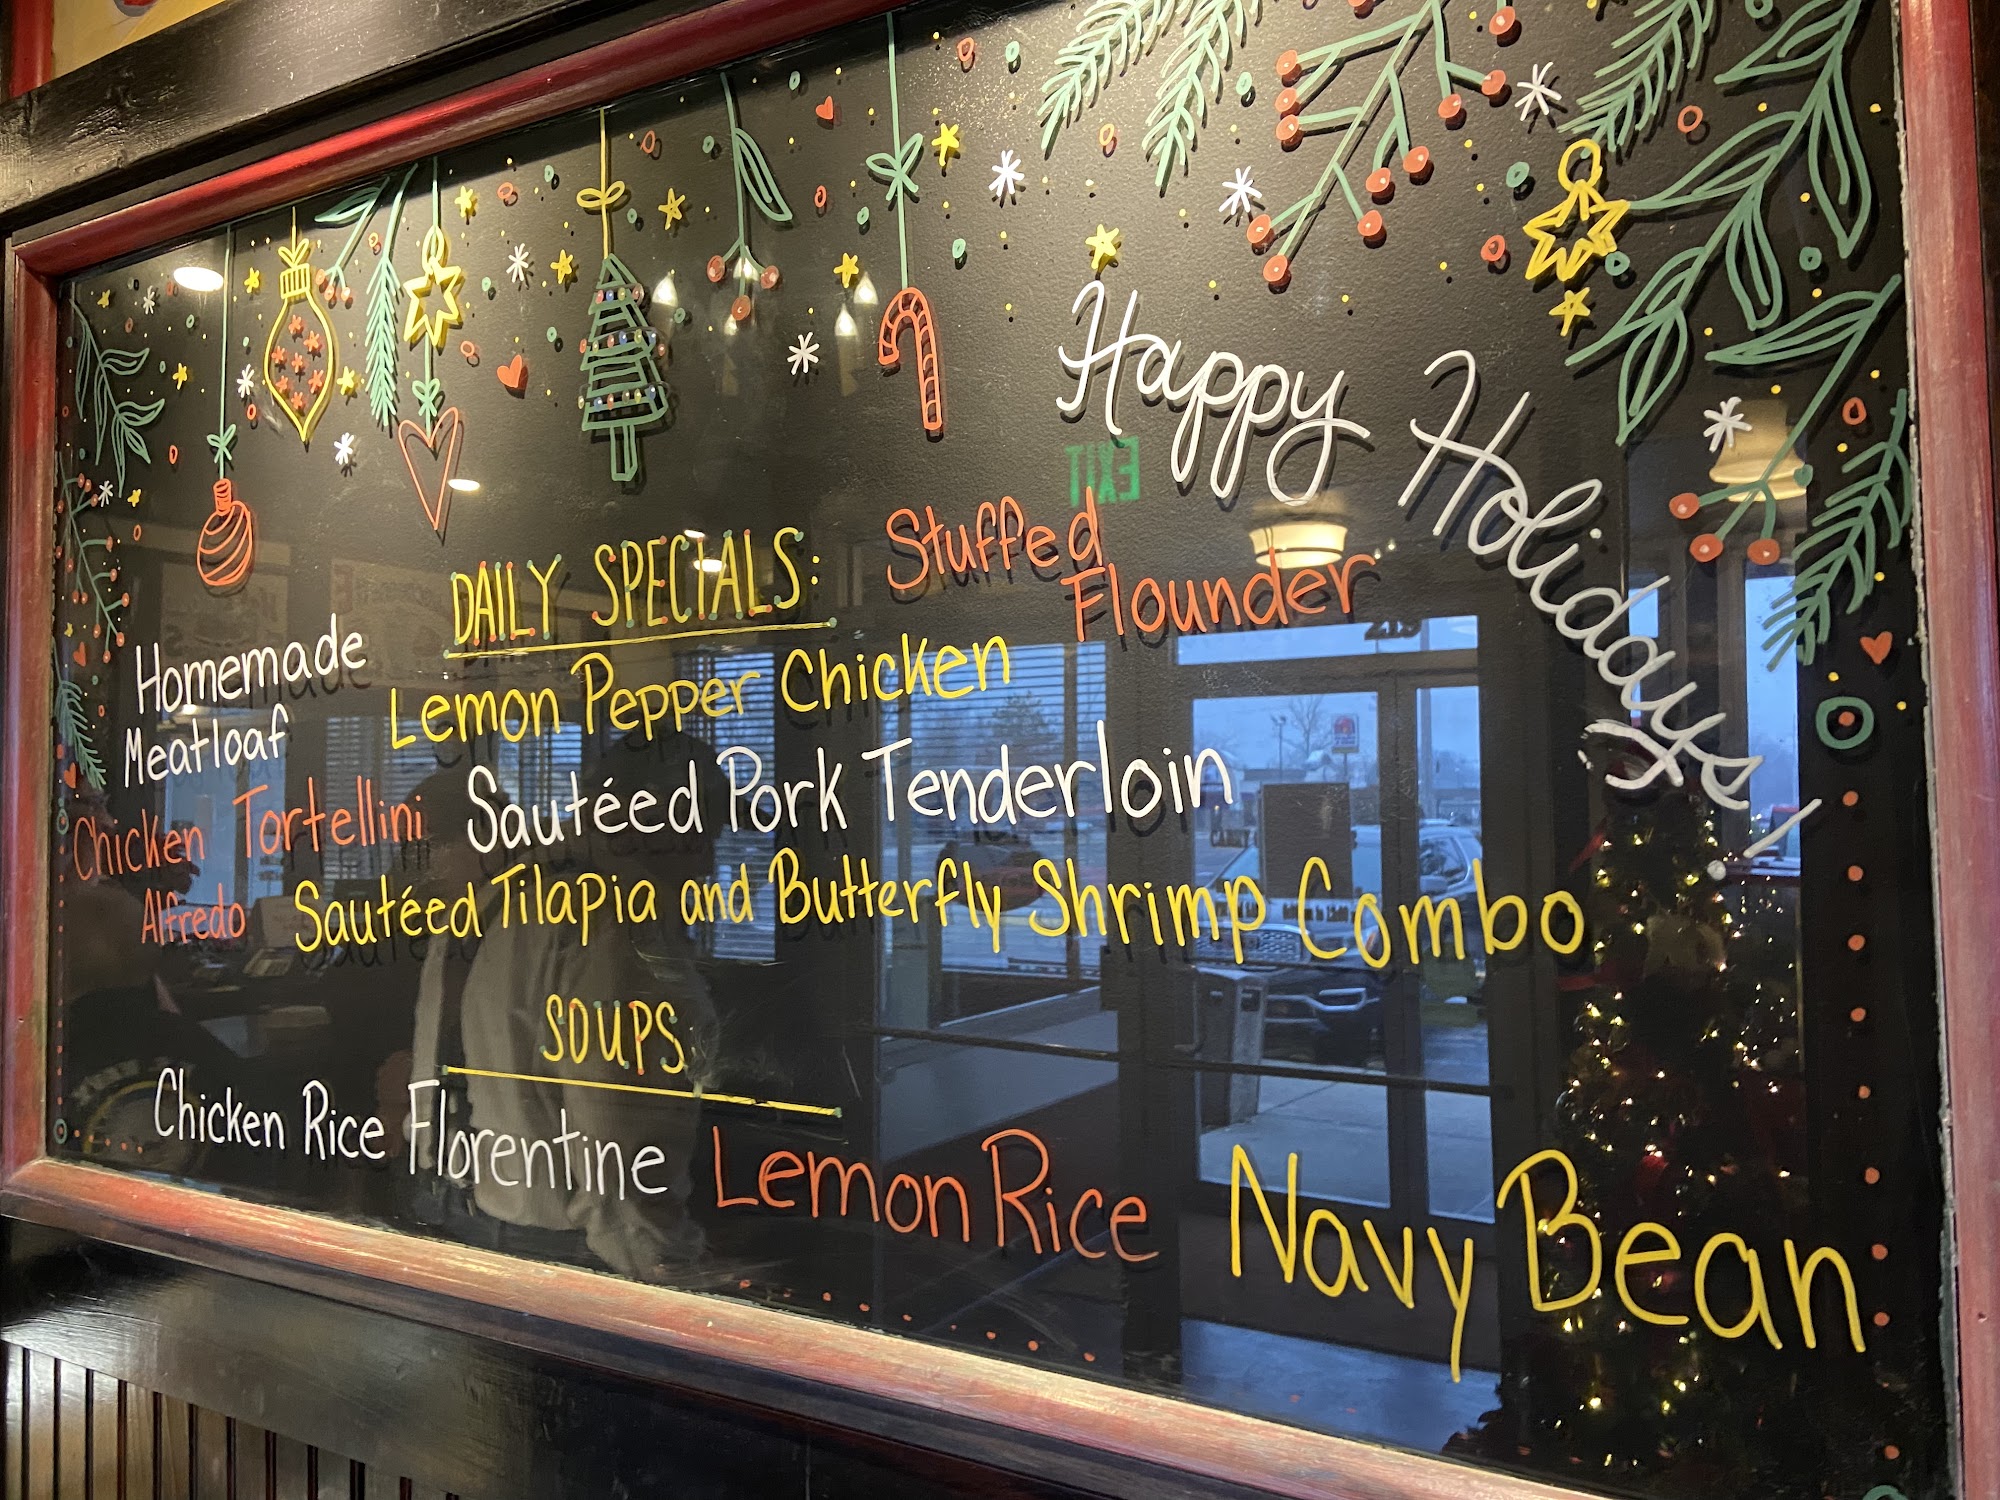 Happy Holidays!
DAILY SPECIALS:
Stuffed
Flounder
Homemade
Meatloaf
Lemon Pepper Chicken
Chicken Tortellini
Alfredo
Sautéed Pork Tenderloin
Sautéed Tilapia and Butterfly Shrimp Combo
SOUPS
Chicken Rice Florentine
Lemon Rice
Navy Bean
EXIT
219